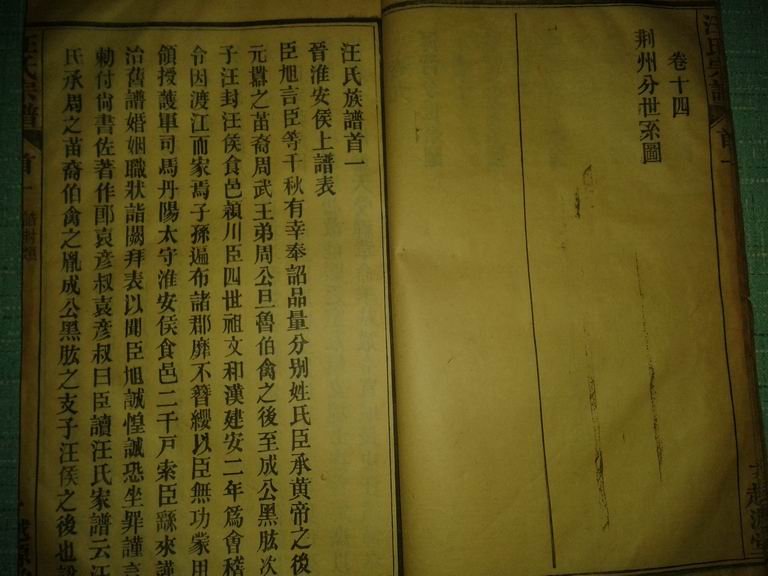 汪氏宗譜
首一
卷十四
荆州分世系圖
汪氏族譜首一
晉淮安侯上譜表
臣旭言臣等千秋有幸奉詔品量分别姓氏臣承黃帝之後
元囂之苗裔周武王弟周公旦魯伯禽之後至成公黑肱次
子汪封汪侯食邑潁川臣四世祖文和漢建安二年為會稽
令因渡江而家焉子孫遍布諸郡靡不簪纓以臣無功蒙用
領授護軍司馬丹陽太守淮安侯食邑二千戸索臣繇來謹
治舊譜婚姻職狀詣闕拜表以聞臣旭誠惶誠恐坐罪謹言
勅付尙書佐著作郎袁彦叔袁彦叔曰臣讀汪氏家譜云汪
氏承周之苗裔伯禽之胤成公黑肱之支子汪侯之後也
汪氏宗譜
首一